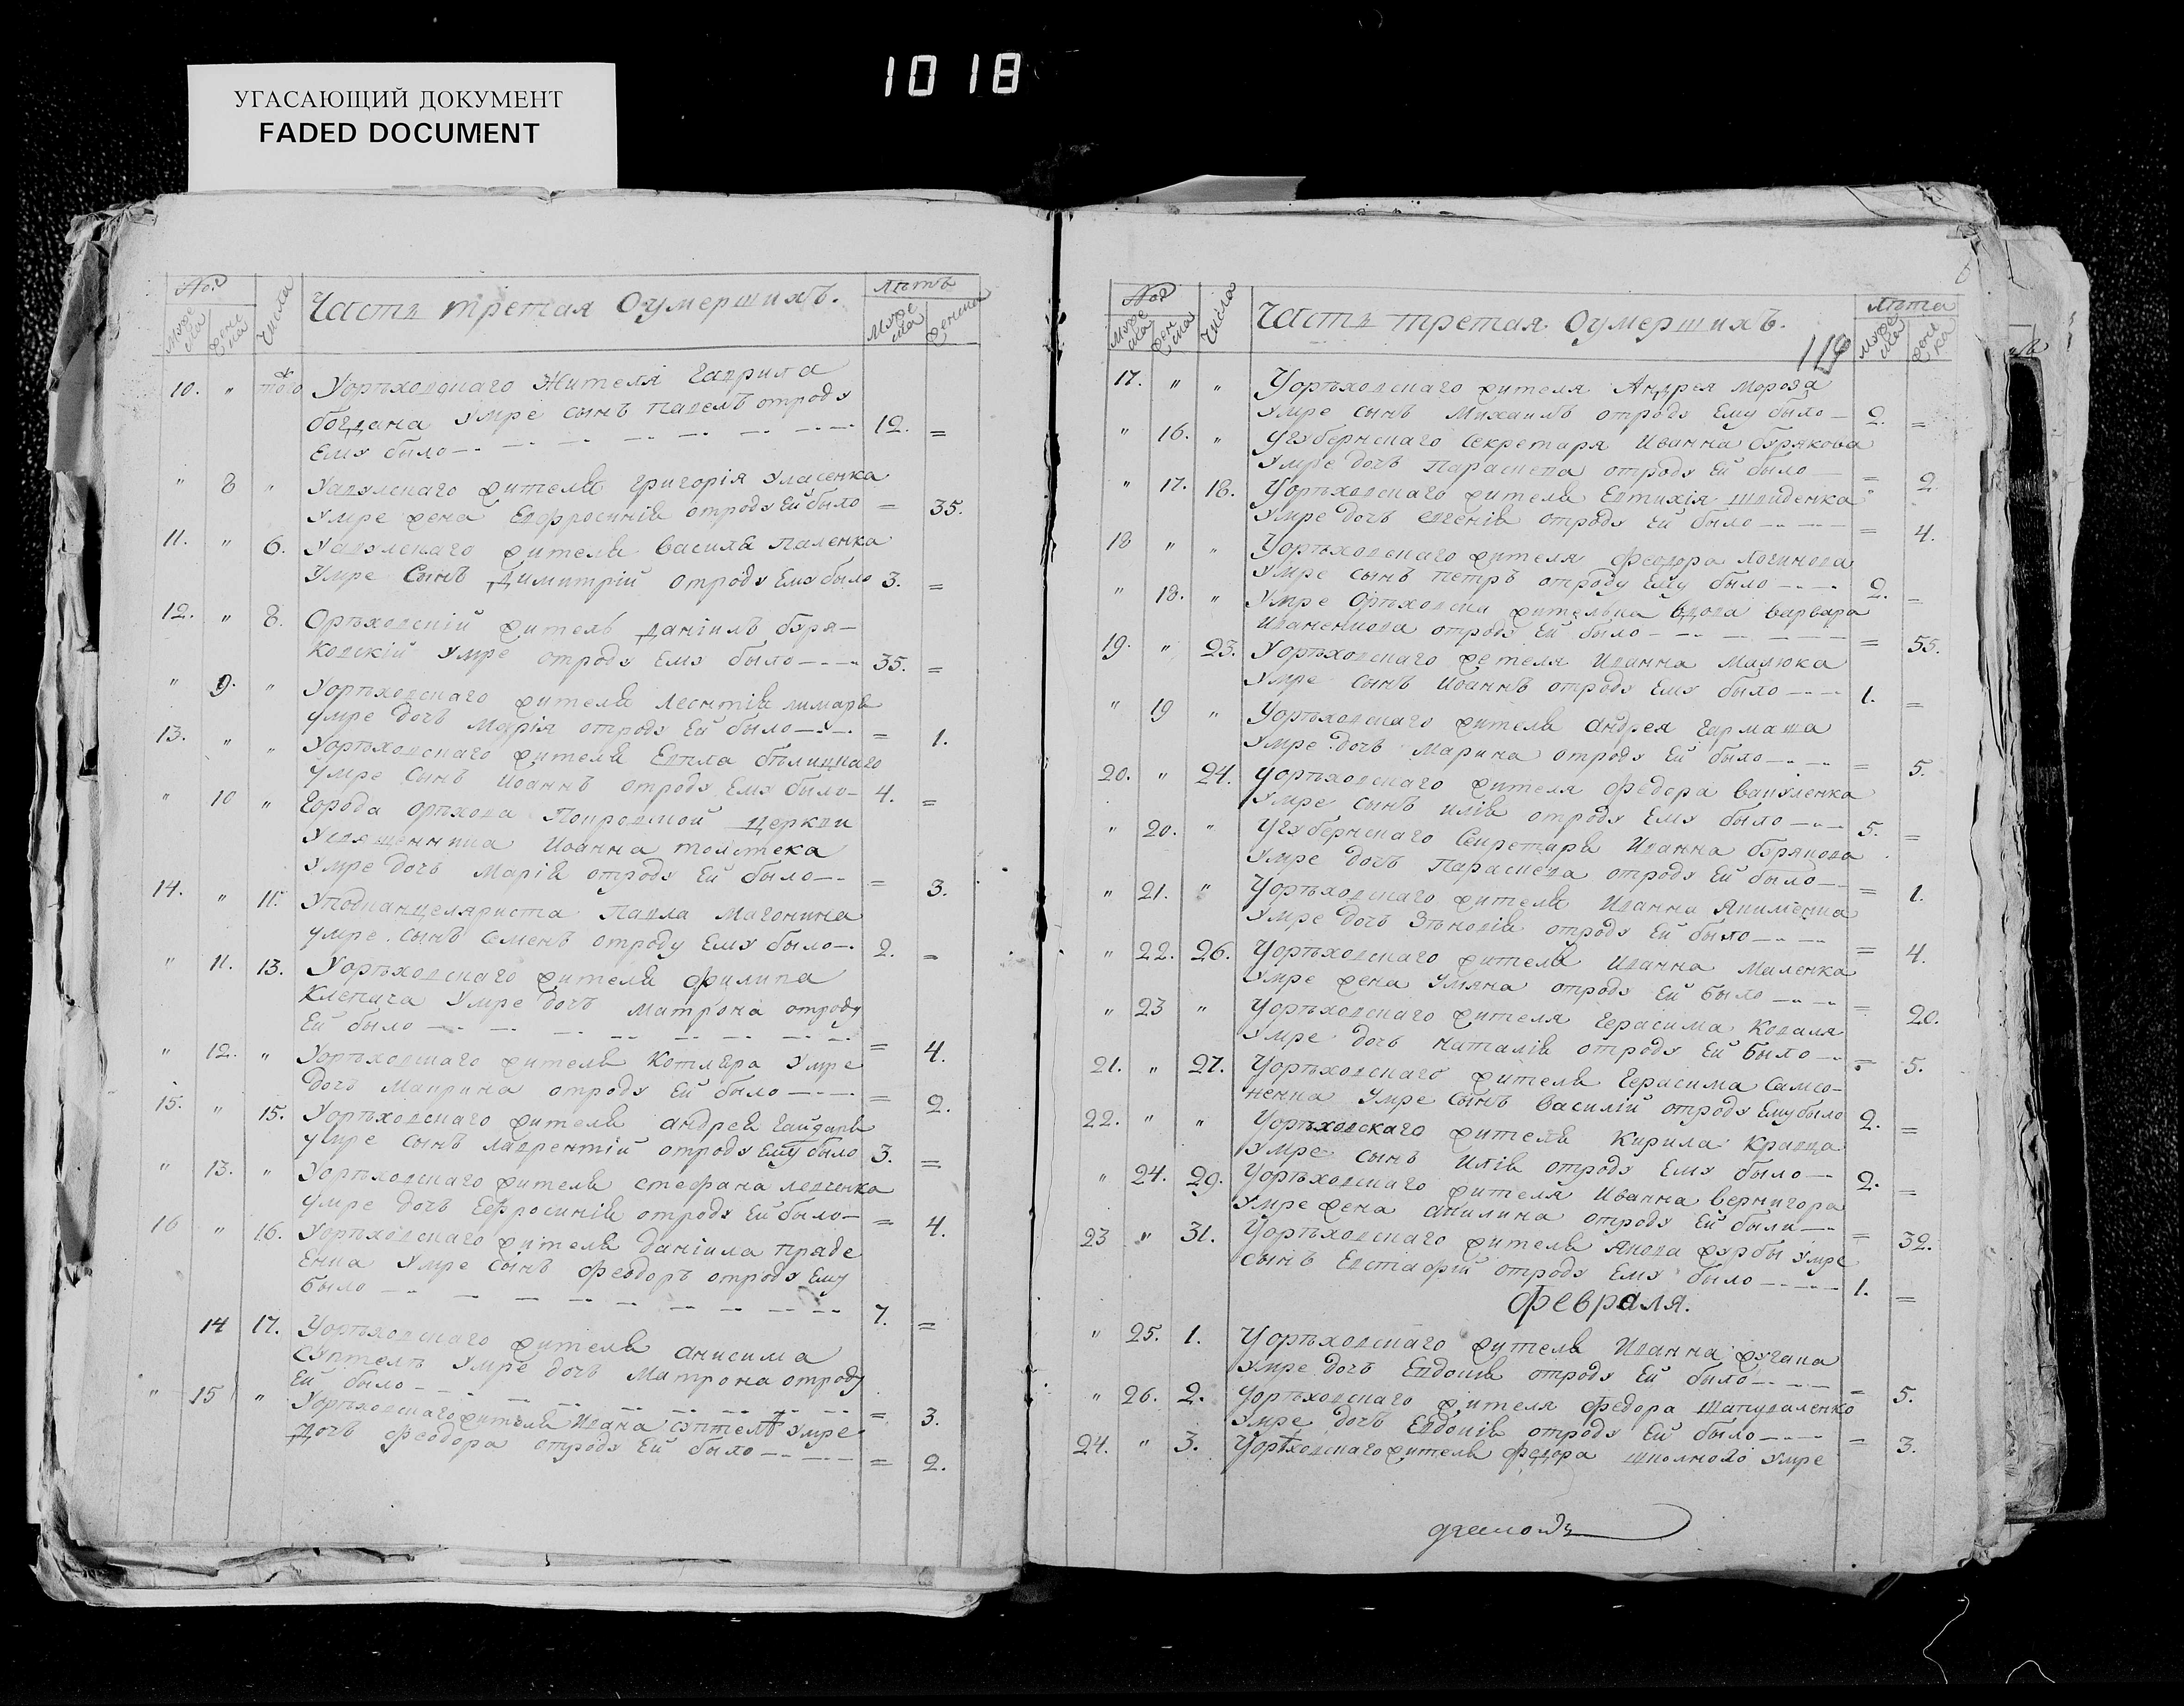 1018
УГАСАЮЩИЙ ДОКУМЕНТ
FADED DOCUMENT
No.
Числа
Часть третая Оумершихъ.
Лѣтъ
муже ска
женс ка
муже ска
женска
10. " того Уорѣховскаго Жителя Гаврила
богдана умре сынъ павелъ отроду
Ему было 12. =
" 8 " Григорія Уласенка
умре жена Евфросинія отроду Ей было = 35.
11. " 6. жителя василя Паленка
Умре Сынъ Димитрій отроду Ему было 3. =
12. " 8. Орѣховскій житель данійлъ буря-
ковскій умре отроду Ему было 35. =
" 9. " Уорѣховскаго жителя Леонтія лимаря
умре дочь Марія отроду Ей было = 1.
13. " " Уорѣховскаго жителя Евпла бѣлицкаго
умре Сынъ Иоаннъ отроду Ему было 4. =
" 10 " Города орѣхова Покровской церкви
Усвященника Иоанна толстека
умре дочь Марія отроду Ей было = 3.
14. " 11. Уподканцеляриста Павла Магонина
умре сынъ Семенъ отроду Ему было 2. =
" 11. 13. Уорѣховскаго жителя Филипа
Клепача Умре дочь Матрона отроду
Ей было = 4.
" 12. " Уорѣховскаго жителя Котляра Умре
дочь Маирина отроду Ей было = 2.
15. " 15. Уорѣховскаго жителя андрея Гайдаря
умре сынъ лаврентій отроду Ему было 3. =
" 13. " Уорѣховскаго жителя стефана левченка
умре дочь Евфросинія отроду Ей было = 4.
16 " 16. Уорѣховскаго жителя даніила праде
енка Умре сынъ Феодоръ отроду Ему
было 7. =
14 17. Уорѣховскаго жителя анисима
Умре дочь Матрона отроду
Ей было = 3.
" 15 " Уорѣховскаго жителя Ивана Умре
дочь Феодора отроду Ей было = 2.
No.
муже ска
жен ска
Числа
Часть третая Оумершихъ.
Лѣта
муже ска
женс ка
17. " " Уорѣховскаго жителя Андрея мороза
умре сынъ Михаилъ отроду Ему было 2. =
" 16. " Угубернскаго Секретаря Иванна бурякова
умре дочь Параскева отроду Ей было = 2.
" 17. 18. Уорѣховскаго жителя Евтихія шведенка
умре дочь евгенія отроду Ей было = 4.
18 " " Уорѣховскаго жителя Феодора логинова
умре сынъ петръ отроду Ему было 2. =
" 18. " Умре Орѣховска жителька вдова варвара
Иваненкова отроду Ей было = 55.
19. " 23. Уорѣховскаго жетеля Иванна Малюка
умре сынъ Иоаннъ отроду Ему было 1. =
" 19 " Уорѣховскаго жителя андрея Гармаша
умре дочь Марина отроду Ей было = 5.
20. " 24. Уорѣховскаго жителя Федора вакуленка
умре сынъ илія отроду Ему было 5. =
" 20. " Угубернскаго Секретаря Иванна бурякова
умре дочь Параскева отроду Ей было = 1.
" 21. " Уорѣховскаго жителя Иванна Якименка
умре дочь Зѣновія отроду Ей было = 4.
" 22. 26. Уорѣховскаго жителя Иванна Маленка
умре жена Умяна отроду Ей было = 20.
" 23 " Уорѣховскаго жителя Герасима Коваля
умре дочь наталія отроду Ей было = 5.
21. " 27. Уорѣховскаго жителя Герасима Самсо-
ненка Умре сынъ василій отроду Ему было 2. =
22. " " Уорѣховскаго жителя Кирила кравца
умре сынъ Илія отроду Ему было 2. =
" 24. 29. Уорѣховскаго жителя Иванна вернигора
умре жена акилина отроду Ей было = 32.
23 " 31. Уорѣховскаго жителя Якова журбы умре
сынъ Евстафій отроду Ему было 1. =
Февраля.
" 25. 1. Уорѣховскаго жителя Иванна жугана
умре дочь Евдокія отроду Ей было = 5.
" 26. 2. Уорѣховскаго жителя Федора шаповаленко
умре дочь Евдокія отроду Ей было = 3.
24. " 3. Уорѣховскаго жителя Федора школного умре